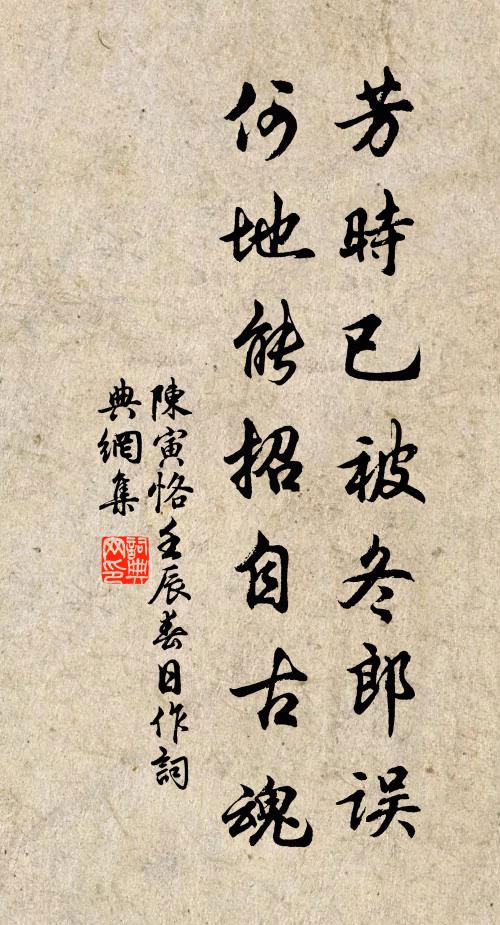 芳時已被冬郎误
何地能招自古魂
陳寅恪壬辰春日作詞
典網集
詞典网印